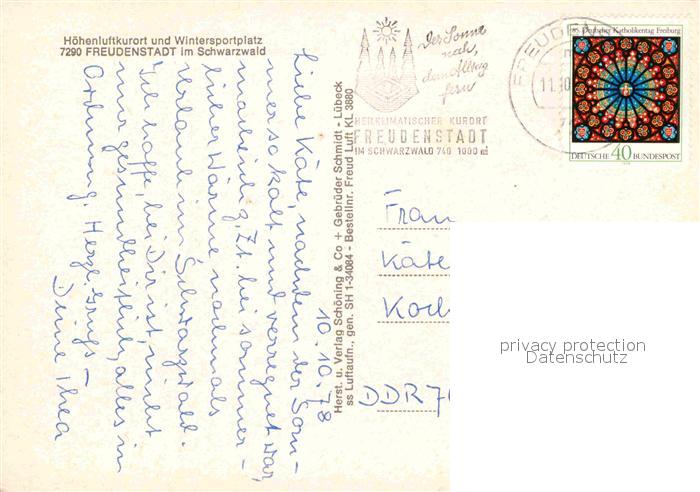 Höhenluftkurort und Wintersportplatz
7290 FREUDENSTADT im Schwarzwald
10.10.78
Liebe Käte, nachdem der Som-
mer so kalt und verregnet war,
mache ich z. Zt. bei sommer-
licher Wärme nochmals
Urlaub im Schwarzwald.
Ich hoffe, bei Dir ist, nicht
nur gesundheitlich, alles in
Ordnung. Herzl. Grüße –
Deine Thea
Herst. u. Verlag Schöning & Co + Gebrüder Schmidt - Lübeck
ss Luftaufn., gen. SH 1-34084 - Bestellnr. Freud Luft KL 3880
Der Sonne
nah,
dem Alltag
fern
HEILKLIMATISCHER KURORT
FREUDENSTADT
IM SCHWARZWALD 740 1000 m
FREUDEN
11.10
85. Deutscher Katholikentag Freiburg
DEUTSCHE 40 BUNDESPOST
Frau
Käte
Koch
DDR 70
privacy protection
Datenschutz